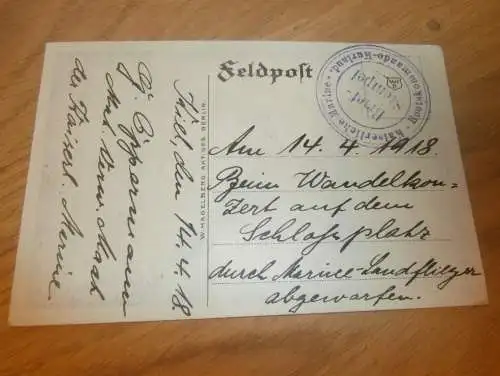 Feldpost
Kaiserliche Marine
Brief-
Stempel
Am 14. 4. 1918.
Beim Wandelkon=
zert auf dem
Schloßplatz
durch Marine-Landflieger
abgeworfen.
W. HAGELBERG AKT. GES. BERLIN.
Kiel, den 14. 4. 18.
der Kaiserl. Marine